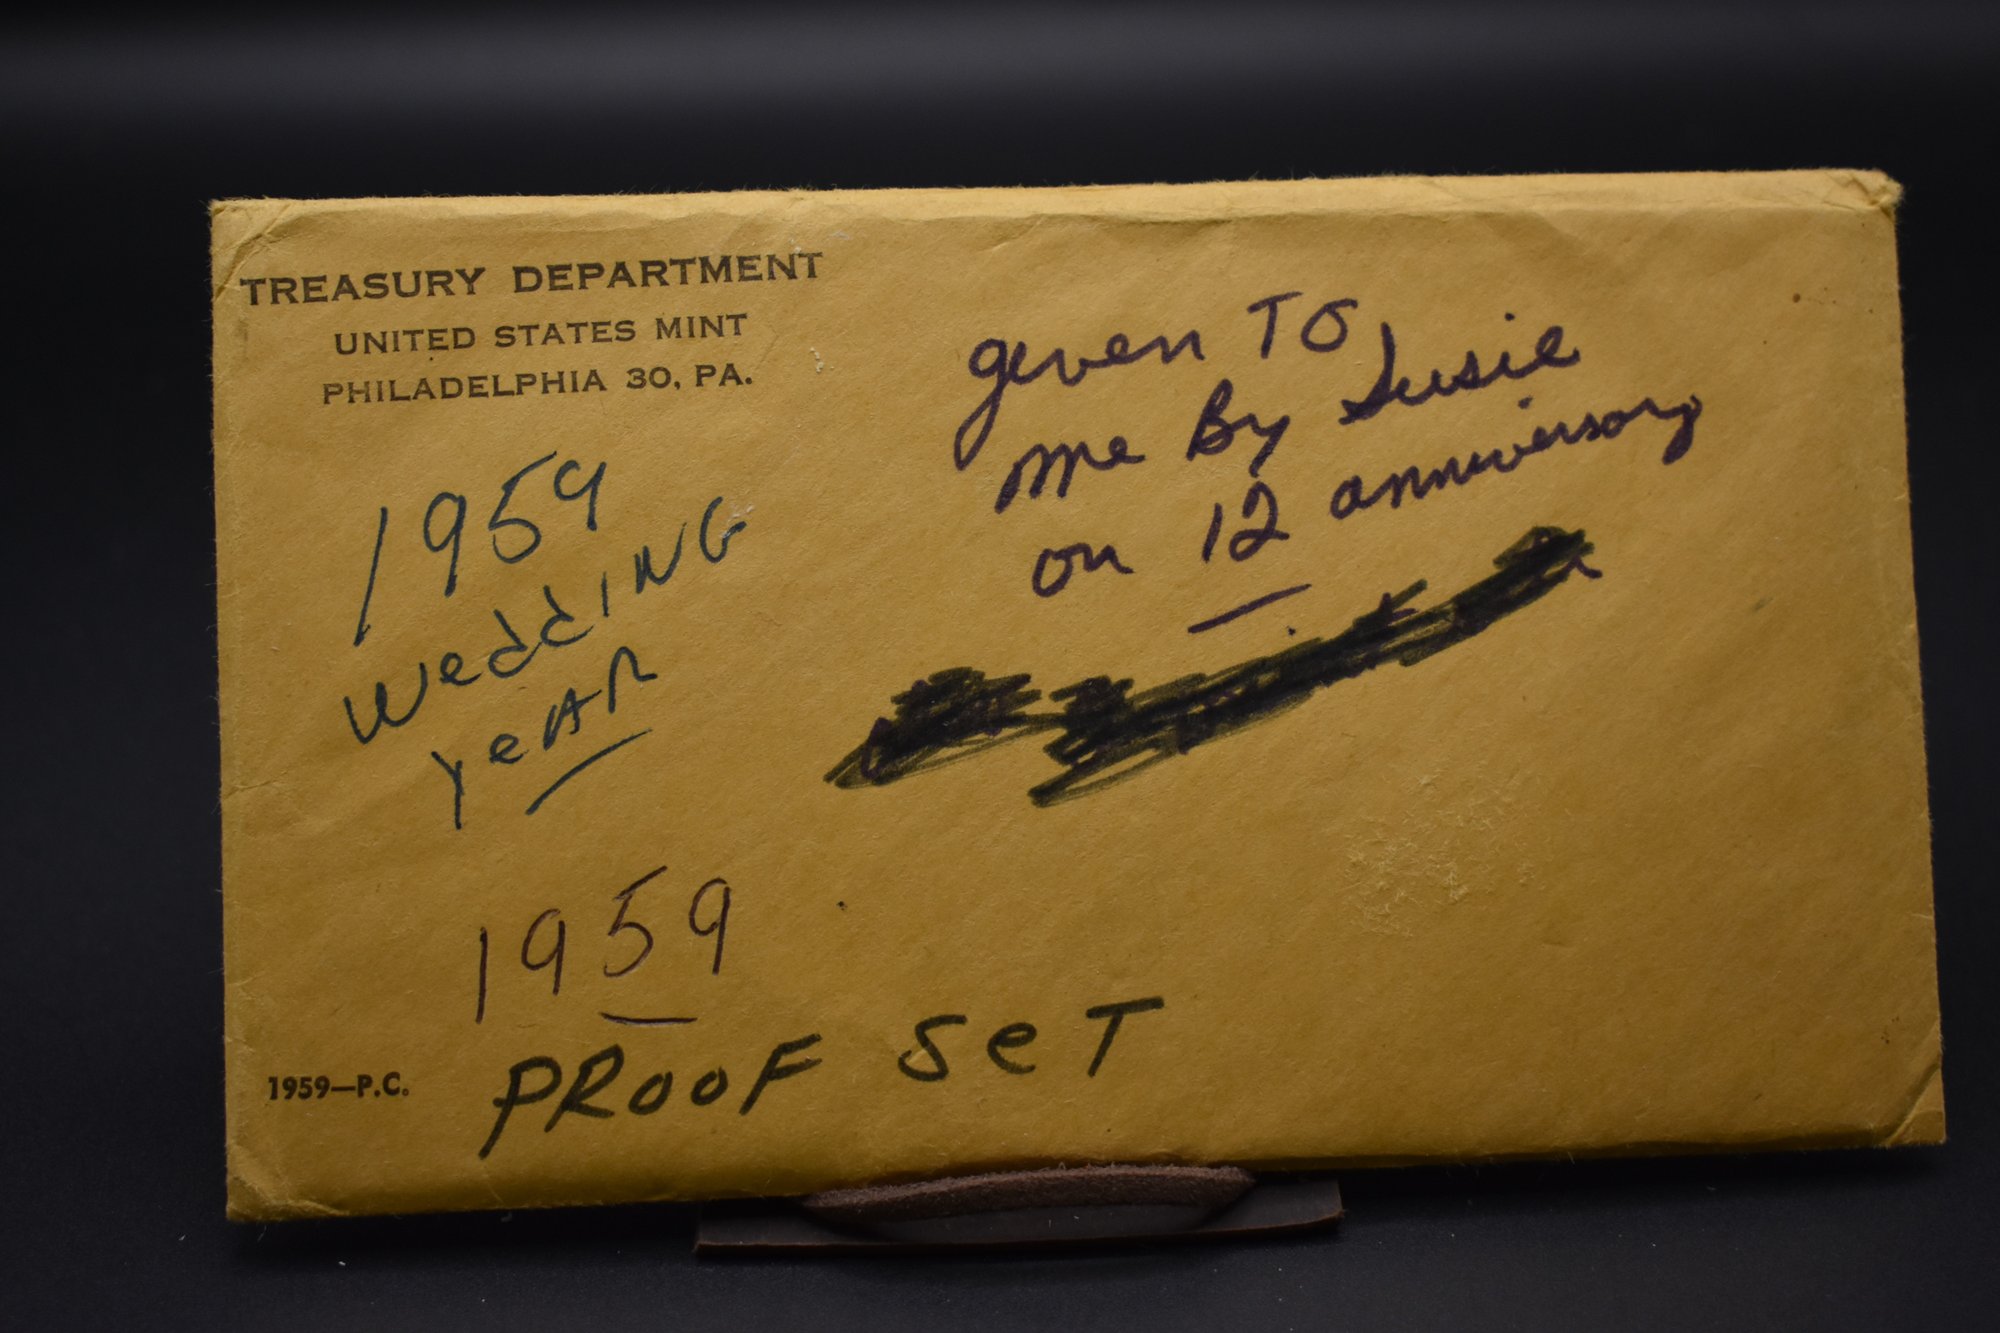 TREASURY DEPARTMENT
UNITED STATES MINT
PHILADELPHIA 30, PA.
given TO
me By Susie
on 12 anniversary
1959
WeddiNG
YeAR
1959
PROOF SeT
1959—P.C.